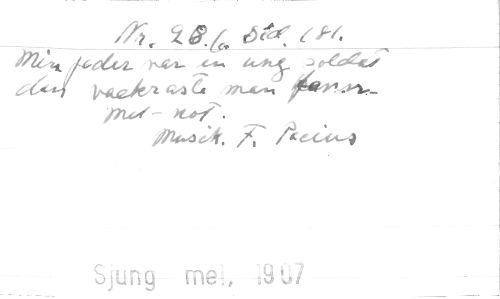 Nr. 28. Sid. 181.
Min fader var en ung soldat
den vackraste man fann.
Mel-not.
Musik. F. Pacius
Sjung mel. 1907